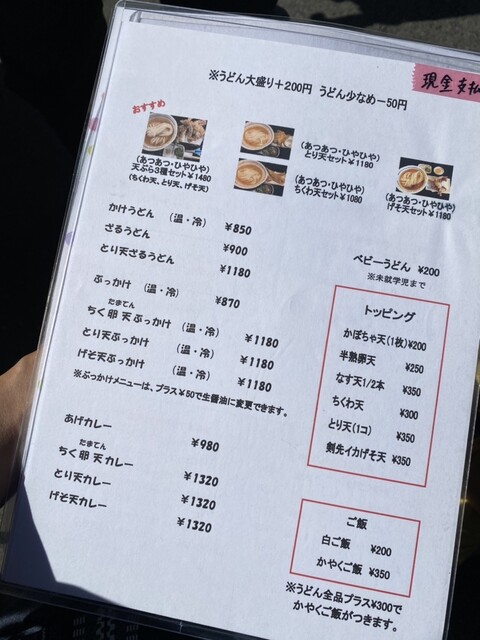 ※うどん大盛り＋200円 うどん少なめ－50円
現金支払
おすすめ
(あつあつ・ひやひや)
天ぷら3種セット￥1480
(ちくわ天、とり天、げそ天)
(あつあつ・ひやひや)
とり天セット￥1180
(あつあつ・ひやひや)
ちくわ天セット￥1080
(あつあつ・ひやひや)
げそ天セット￥1180
かけうどん (温・冷) ￥850
ざるうどん ￥900
とり天ざるうどん ￥1180
ぶっかけ (温・冷) ￥870
たまてん
ちく卵天ぶっかけ (温・冷) ￥1180
とり天ぶっかけ (温・冷) ￥1180
げそ天ぶっかけ (温・冷) ￥1180
※ぶっかけメニューは、プラス￥50で生醤油に変更できます。
あげカレー ￥980
たまてん
ちく卵天カレー ￥1320
とり天カレー ￥1320
げそ天カレー ￥1320
ベビーうどん ￥200
※未就学児まで
トッピング
かぼちゃ天(1枚)￥200
半熟卵天 ￥250
なす天1/2本 ￥350
ちくわ天 ￥300
とり天(1コ) ￥350
剣先イカげそ天 ￥350
ご飯
白ご飯 ￥200
かやくご飯 ￥350
※うどん全品プラス￥300で
かやくご飯がつきます。